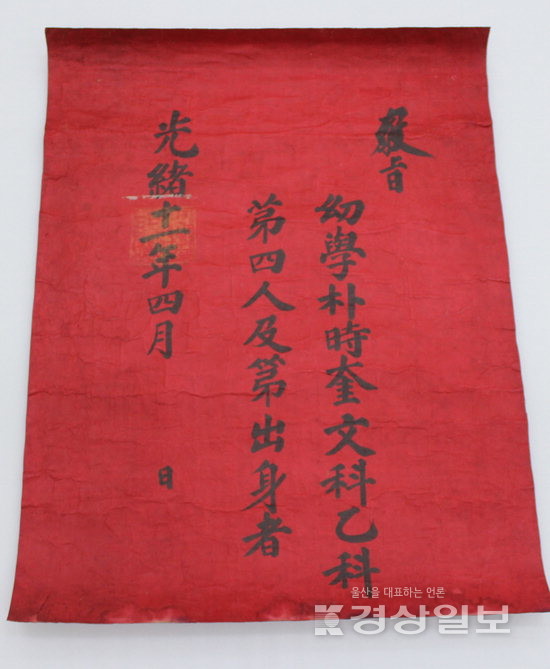 敎旨
幼學朴時奎文科乙科
第四人及第出身者
光緖十一年四月 日
울산을 대표하는 언론
경상일보